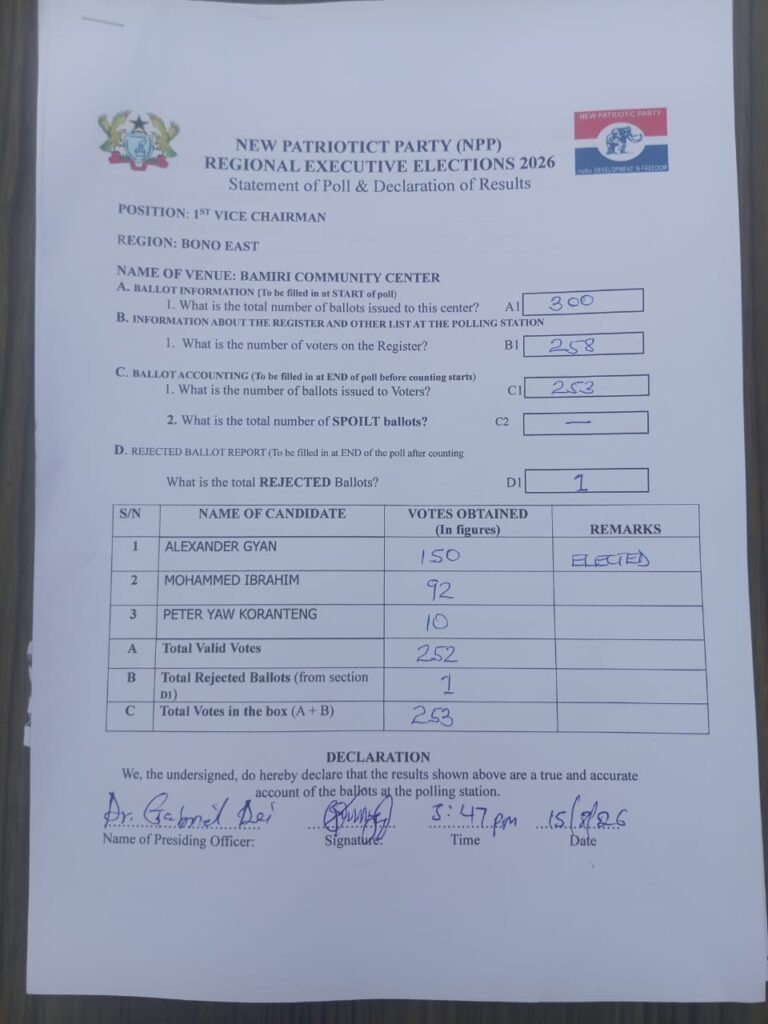 NEW PATRIOTIC PARTY
NEW PATRIOTICT PARTY (NPP)
REGIONAL EXECUTIVE ELECTIONS 2026
Statement of Poll & Declaration of Results
DEVELOPMENT IN FREEDOM
POSITION: 1ST VICE CHAIRMAN
REGION: BONO EAST
NAME OF VENUE: BAMIRI COMMUNITY CENTER
A. BALLOT INFORMATION (To be filled in at START of poll)
1. What is the total number of ballots issued to this center? A1 300
B. INFORMATION ABOUT THE REGISTER AND OTHER LIST AT THE POLLING STATION
1. What is the number of voters on the Register? B1 258
C. BALLOT ACCOUNTING (To be filled in at END of poll before counting starts)
1. What is the number of ballots issued to Voters? C1 253
2. What is the total number of SPOILT ballots? C2 —
D. REJECTED BALLOT REPORT (To be filled in at END of the poll after counting
What is the total REJECTED Ballots? D1 1
S/N NAME OF CANDIDATE VOTES OBTAINED
(In figures) REMARKS
1 ALEXANDER GYAN 150 ELECTED
2 MOHAMMED IBRAHIM 92
3 PETER YAW KORANTENG 10
A Total Valid Votes 252
B Total Rejected Ballots (from section
D1) 1
C Total Votes in the box (A + B) 253
DECLARATION
We, the undersigned, do hereby declare that the results shown above are a true and accurate
account of the ballots at the polling station.
Dr. Gabriel Dei 3:47 pm
Name of Presiding Officer: Signature: Time Date